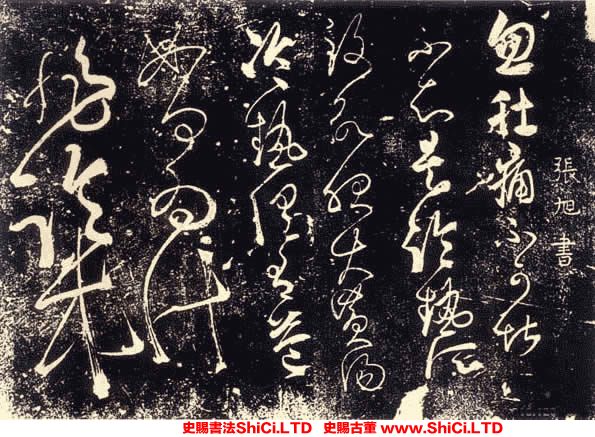 張旭書
忽肚痛不可堪
不知是冷熱所
致欲服大黃湯
冷熱俱有益
如何為計
非臨床
史賜書法ShiCi.LTD 史賜古董 www.ShiCi.LTD